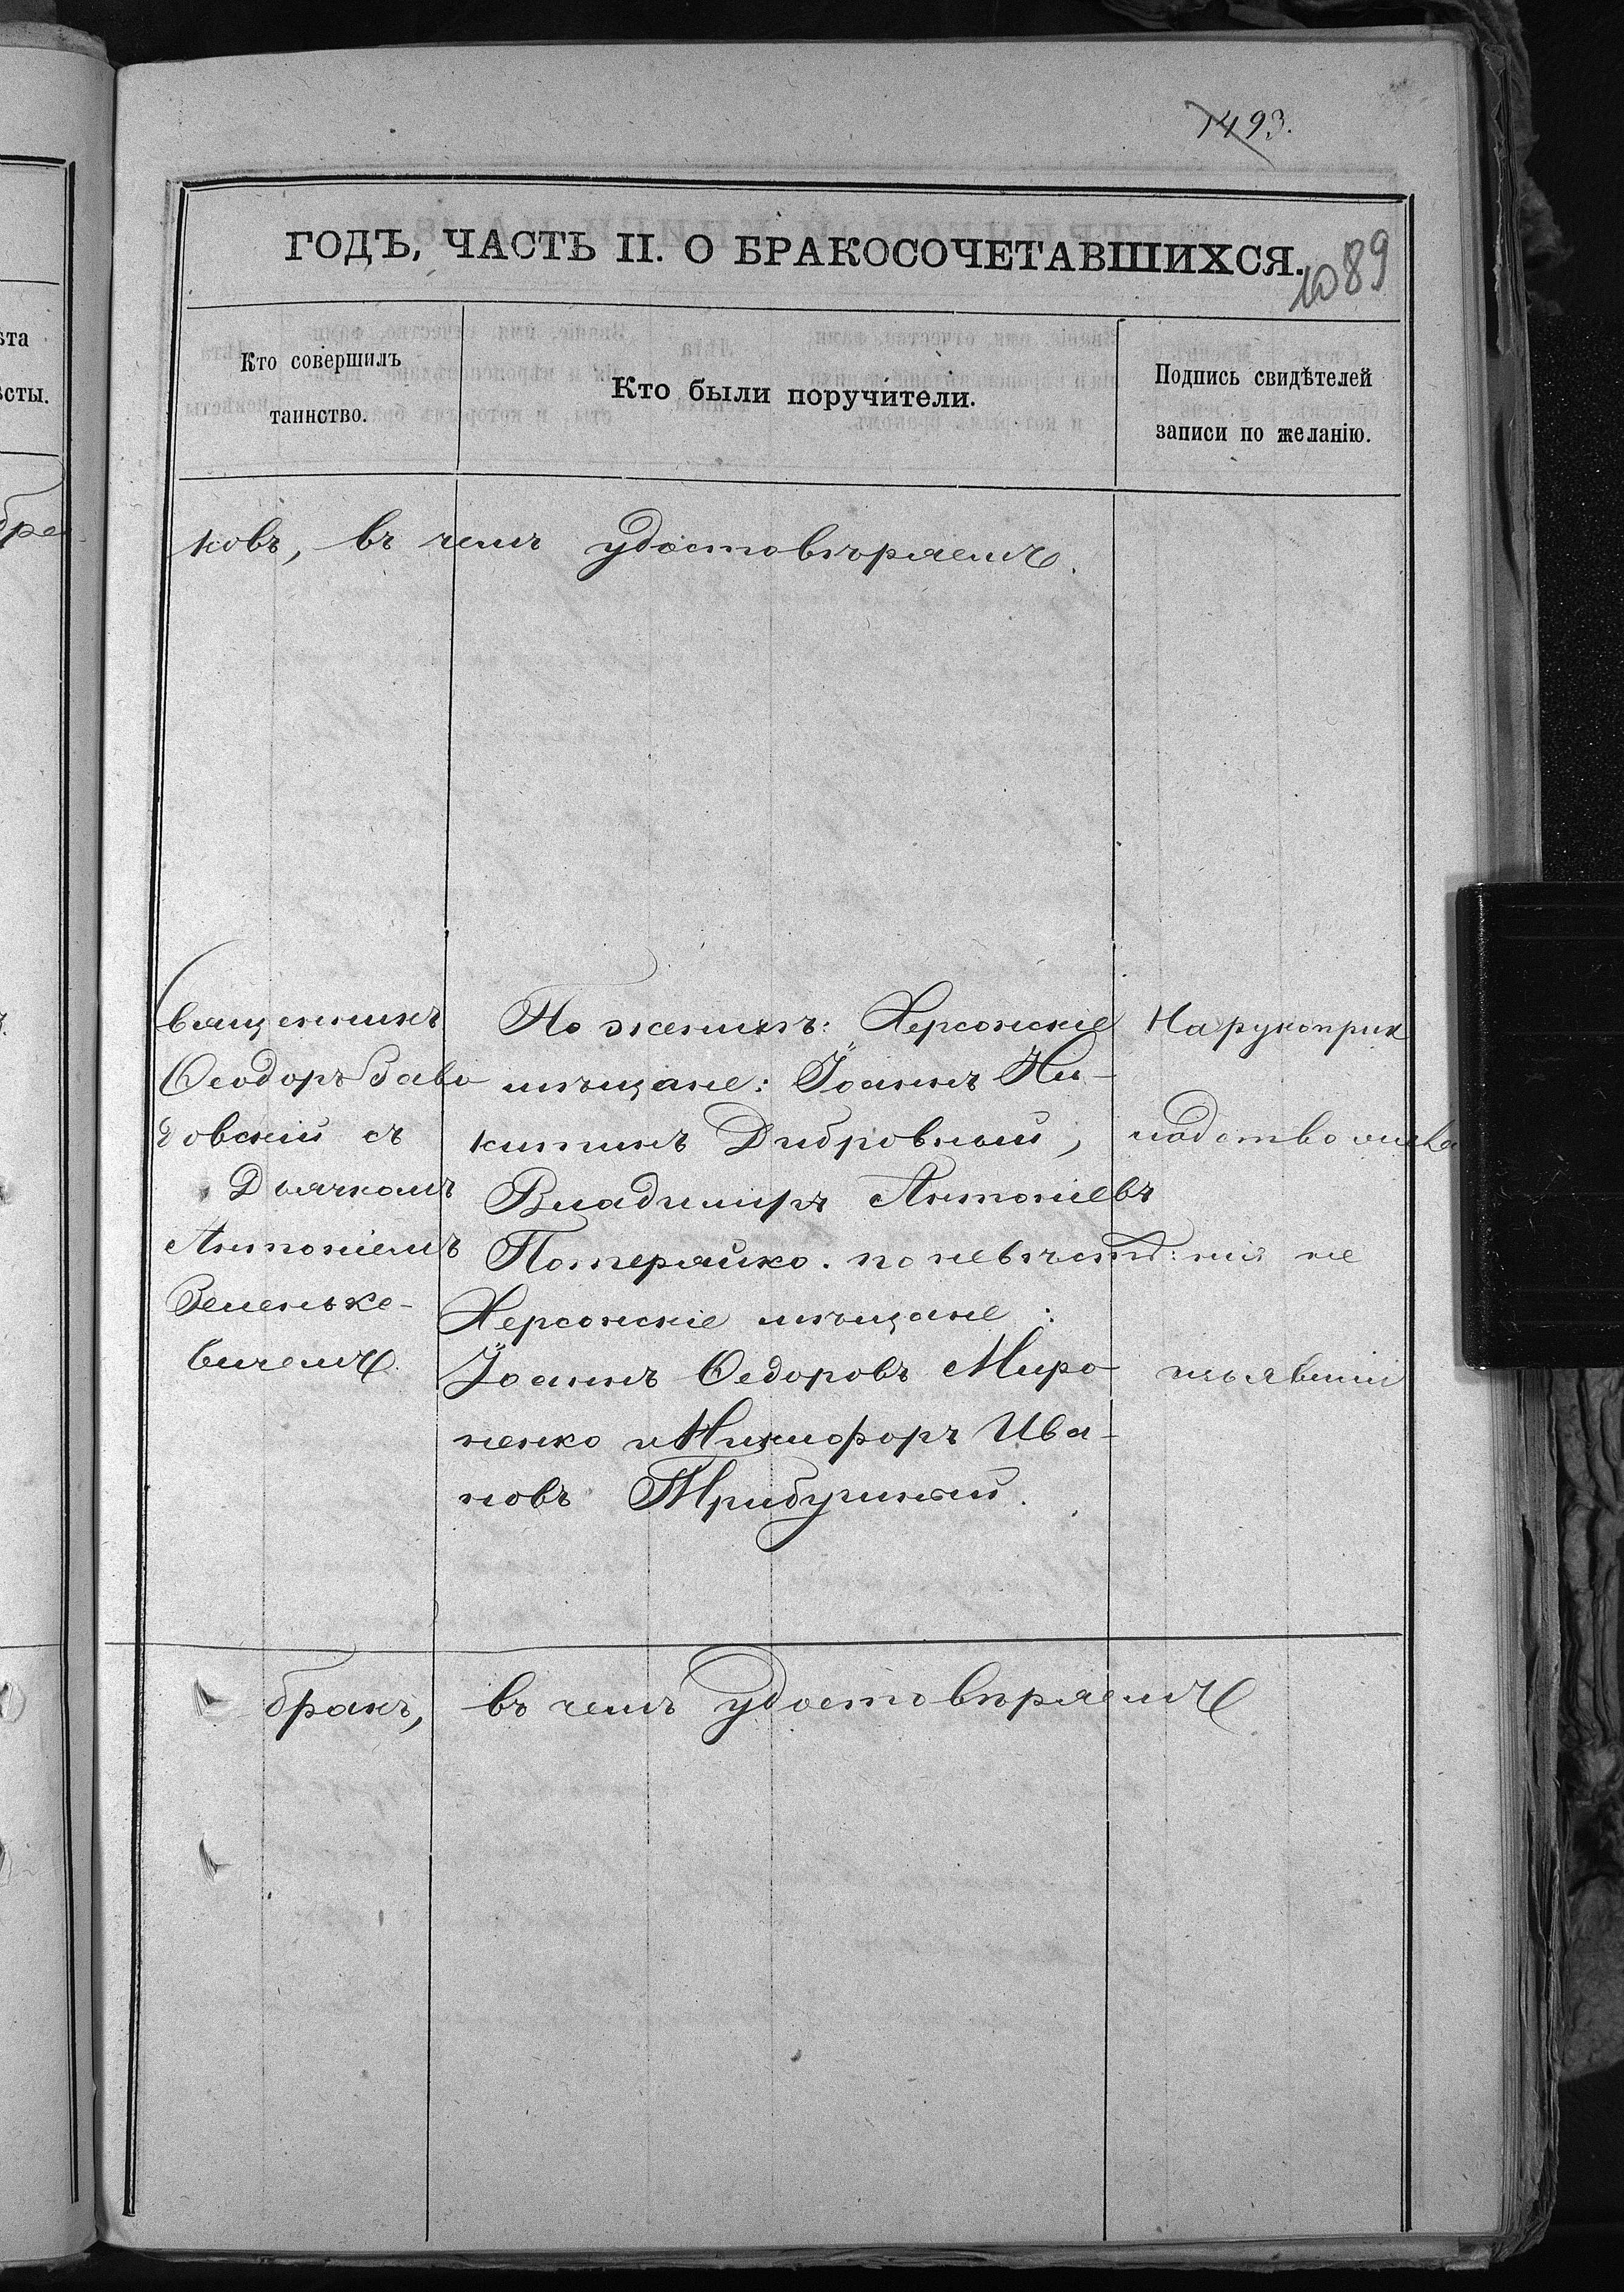 1493.
ГОДЪ, ЧАСТЬ II. О БРАКОСОЧЕТАВШИХСЯ.
1089
Кто совершилъ
таинство.
Кто были поручители.
Подпись свидѣтелей
записи по желанію.
ѣста
ѣсты.
бра
ковъ, въ чемъ удостовѣряемъ.
Священникъ
Ѳеодоръ Заво
довскій съ
Дьячкомъ
Антоніемъ
Зеленьке-
вичемъ.
По женихѣ: Херсонскіе
мѣщане: Іоаннъ Ни-
китинъ Дибровный,
Владимиръ Антоніевъ
Потеряйко. по невѣстѣ:
Херсонскіе мѣщане:
Іоаннъ Ѳедоровъ Миро
ненко и Никифоръ Ива-
новъ Трибушный.
На рукоприк
ладство жела
нія не
изъявили
бракъ, въ чемъ удостовѣряемъ